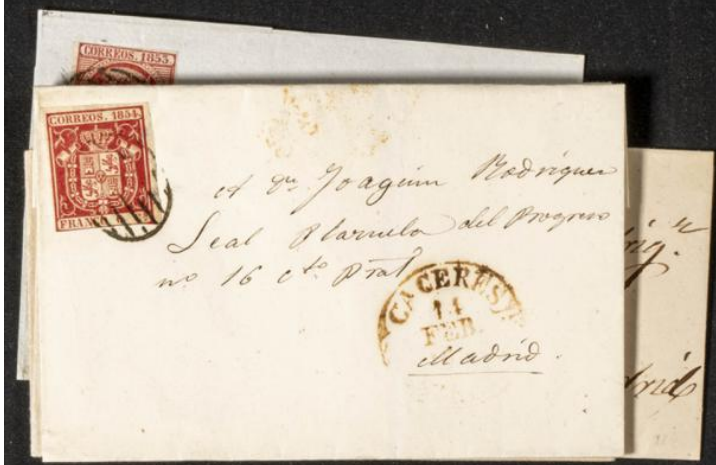 CORREOS. 1853
CORREOS. 1854
FRAN
A Dn Joaquim Rodriguez
Leal Plazuela del Progreso
no 16 cto Pral
CACERES
14
FEB.
Madrid.